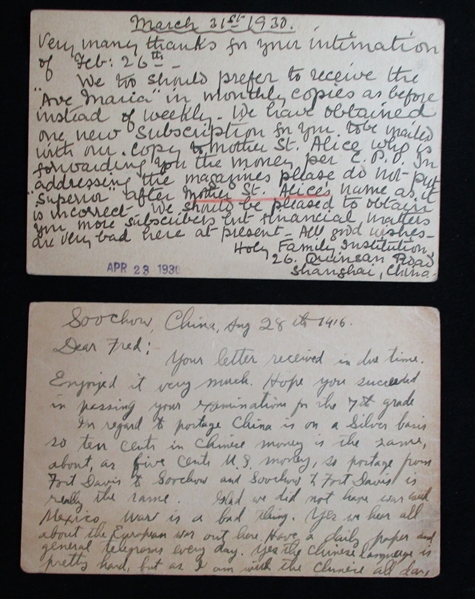 March 31st 1930.
Very many thanks for your intimation
of Feb: 26th -
We too should prefer to receive the
"Ave Maria" in monthly copies as before
instead of weekly. We have obtained
one new subscription for you. to be mailed
with our copy to Mother St. Alice who is
forwarding you the money per C.P.O. In
addressing the magazines please do not put
"Superior" after Mother St. Alice's name as it
is incorrect. We should be pleased to obtain
you more subscribers but financial matters
are very bad here at present - All good wishes -
Holy Family Institution,
26. Quinsan Road
Shanghai, China.
APR 23 1930
Soochow, China, Aug 28th 1916.
Dear Fred;
Your letter received in due time.
Enjoyed it very much. Hope you succeeded
in passing your examination for the 7th grade
In regard to postage China is on a Silver basis
so ten cents in Chinese money is the same,
about, as five cents U.S. money, so postage from
Fort Davis to Soochow and Soochow to Fort Davis is
really the same. Glad we did not have war with
Mexico War is a bad thing. Yes we hear all
about the European war out here. Have a daily paper and
general telegrams every day. Yes the Chinese language is
pretty hard, but as I am with the Chinese all day,